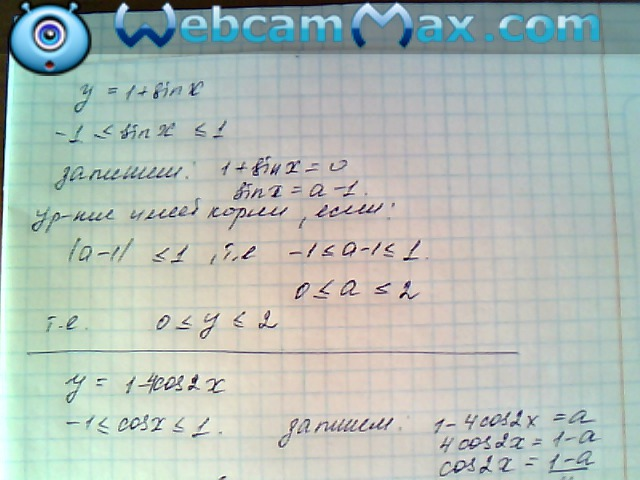 WebcamMax.com
y = 1 + sin x
-1 ≤ sin x ≤ 1
запишем: 1 + sin x = 0
sin x = a - 1.
ур-ние имеет корни, если:
|a-1| ≤ 1, т.е -1 ≤ a-1 ≤ 1.
0 ≤ a ≤ 2
т.е. 0 ≤ y ≤ 2
y = 1 - 4cos2x
-1 ≤ cosx ≤ 1. запишем: 1 - 4cos2x = a
4cos2x = 1-a
cos2x = 1-a